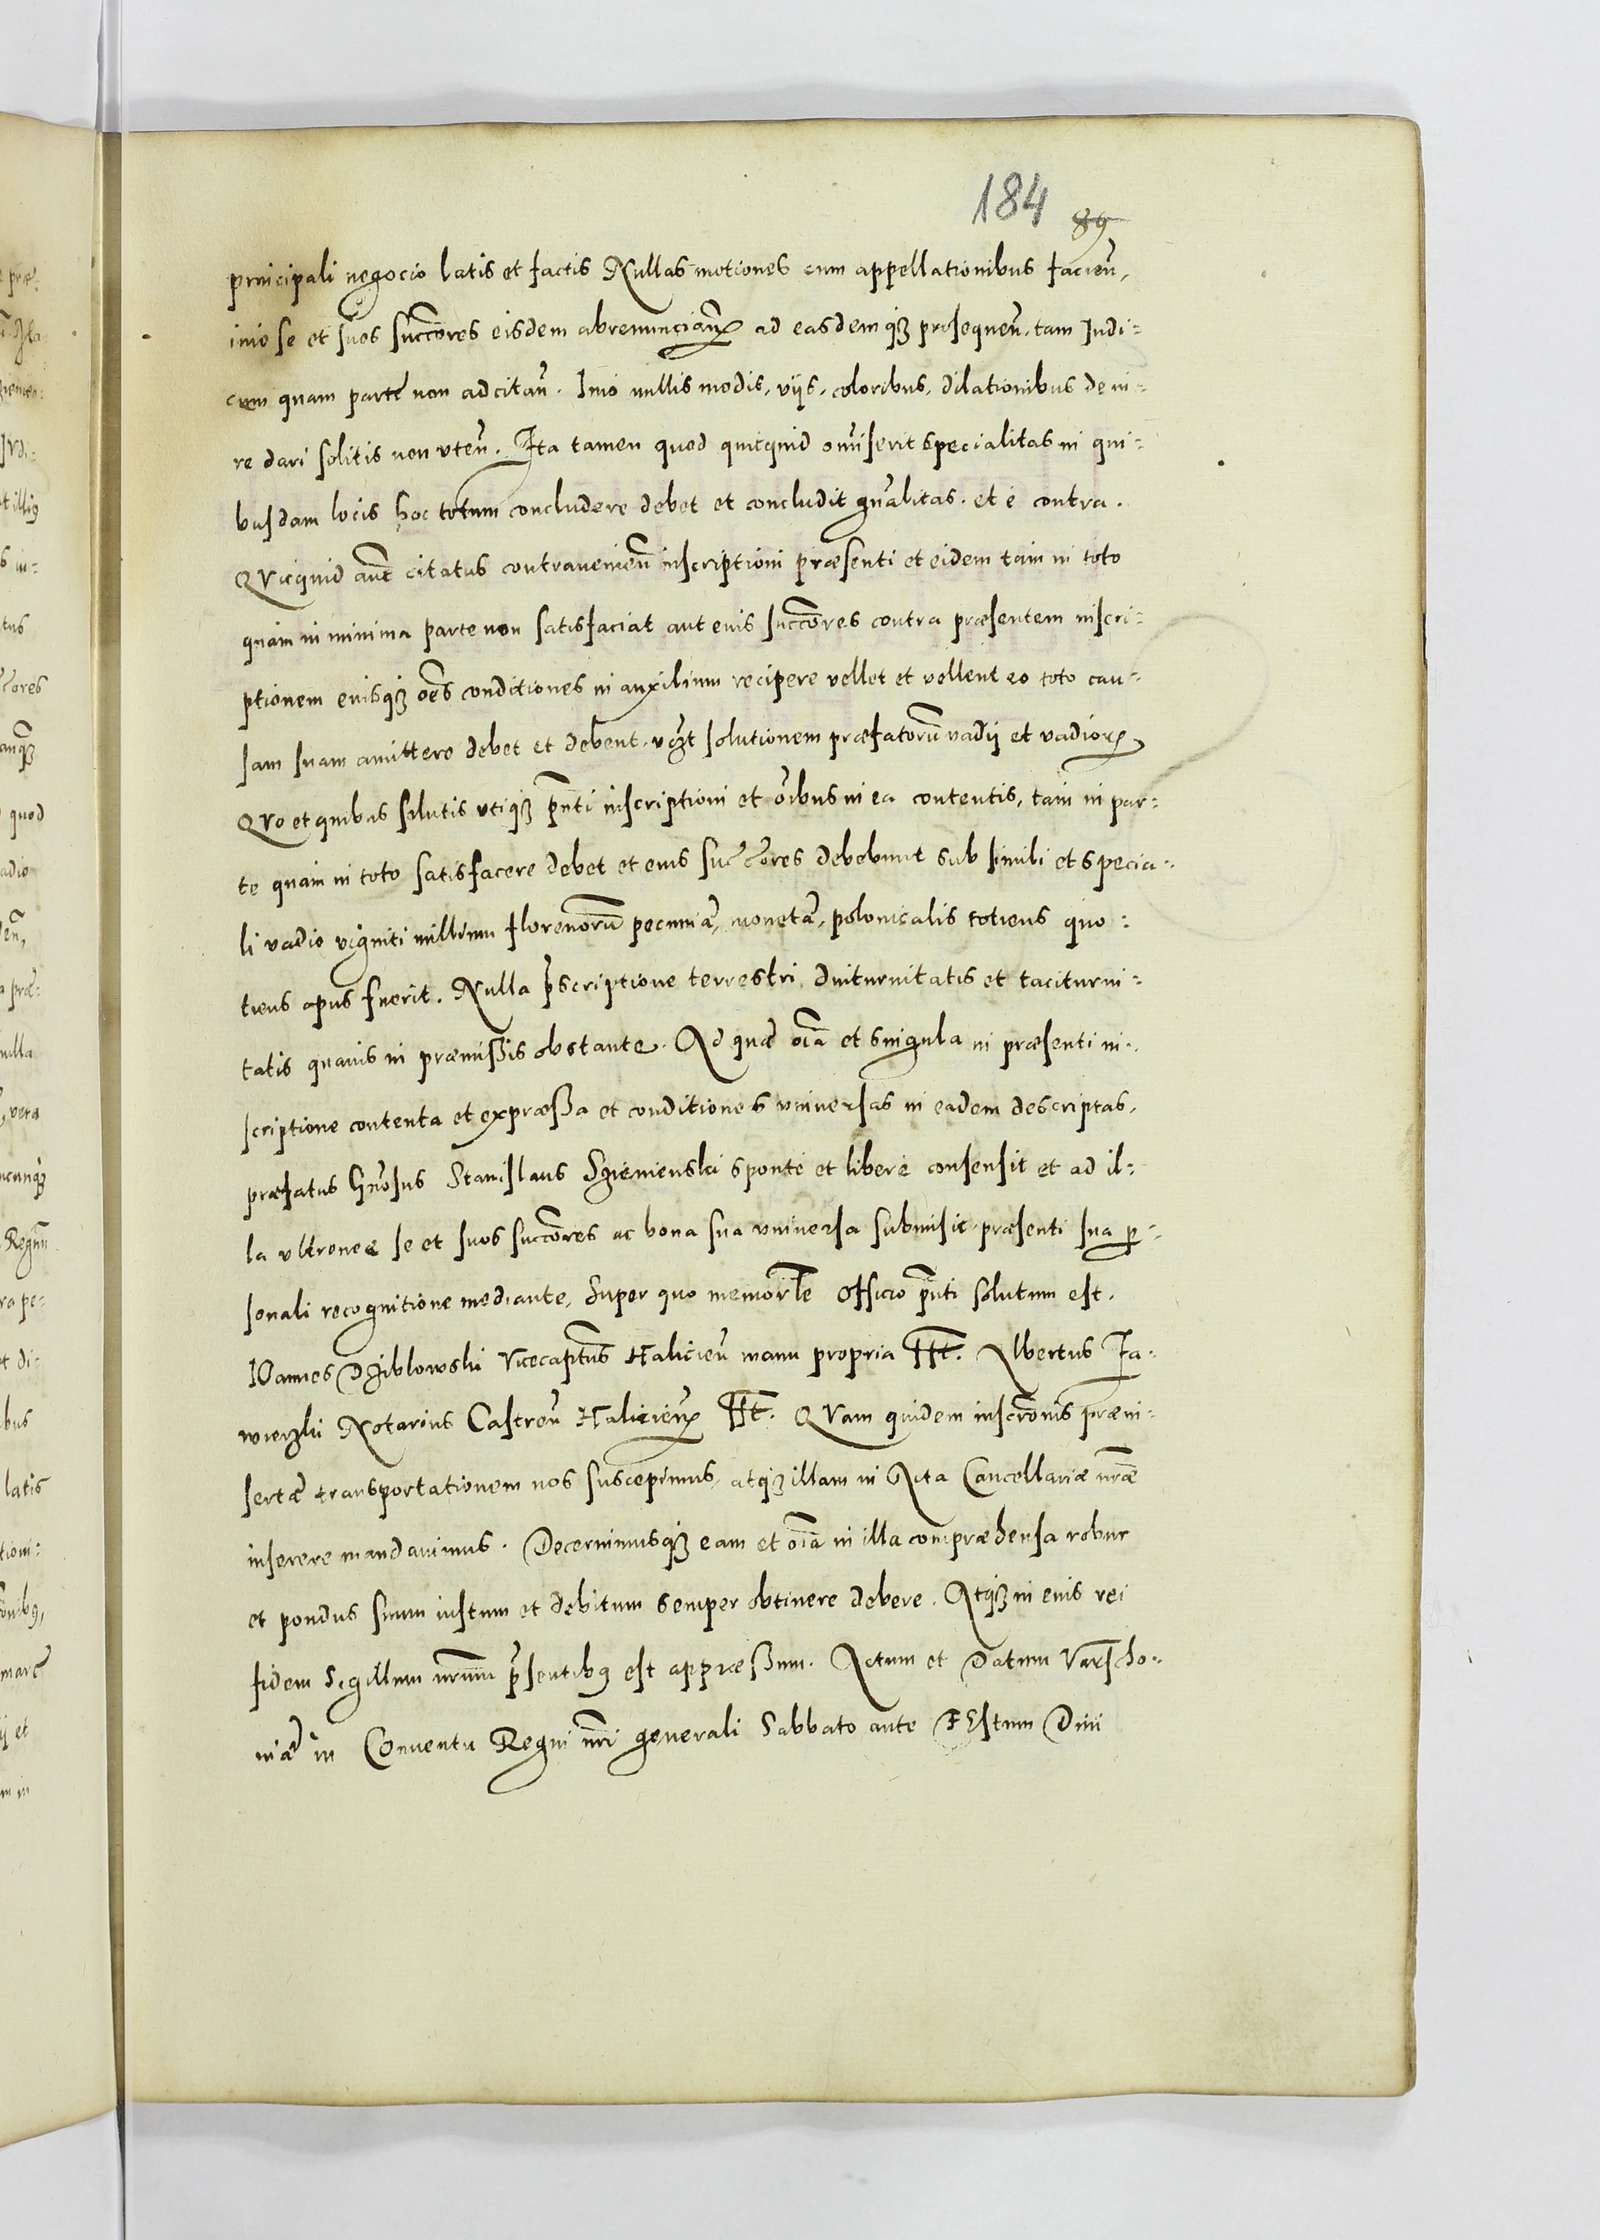 184 89
principali negocio latis et factis Nullas motiones cum appellationibus facieñ,
imo se et suos succõres eisdem abrenuncianꝝ ad easdemqꝫ prosequeñ, tam Judi-
cem quam partẽ non adcitañ. Imo nullis modis, viis, coloribus, dilationibus de iu-
re dari solitis non uteñ. Ita tamen quod quicquid omiserit specialitas in qui-
busdam locis hoc totum concludere debet et concludit gñalitas. et è contra.
QVicquid aut̃ citatus contravenieñ inscriptioni præsenti et eidem tam in toto
quàm in minima parte non satisfaciat aut eius succõres contra præsentem inscri-
ptionem eiusqꝫ oẽs conditiones in auxilium recipere vellet et vellent eo toto cau-
sam suam amittere debet et debent. vꝫt solutionem præfatorũ vadij et vadioꝝ
QVo et quibus solutis utiqꝫ pñti inscriptioni et oĩbus in ea contentis, tam in par-
te quàm in toto satisfacere debet et eius succ̃ores debebunt sub simili et specia-
li vadio viginti millium florenorũ pecuniæ, monetæ, polonicalis totiens quo-
tiens opus fuerit. Nulla p̃scriptione terrestri, diuturnitatis et taciturni-
tatis quavis in præmißis obstante. Ad quæ oĩa et singula in præsenti in-
scriptione contenta et expræßa et conditiones universas in eadem descriptas,
præfatus Gñosus Stanislaus Szienienski sponte et libere consensit et ad il-
la ultronee se et suos succõres ac bona sua universa submisit præsenti sua ꝑ-
sonali recognitione mediante, Super quo memorĩle officio pñti solutum est.
IOannes Dziblowski Vicecaptũs Halicieñ manu propria sst. Albertus Ja-
wierzki Notarius Castreñ Halicienꝝ sst. QVam quidem inscrõnis præin-
sertæ transportationem nos suscepimus, atqꝫ illam in Acta Cancellariæ nr̃æ
inserere mandavimus. Decernimusqꝫ eam et oĩa in illa compræhensa robur
et pondus suum iustum et debitum semper obtinere debere. Atqꝫ in eius rei
fidem Sigillum nr̃um p̃sentibꝰ est appræßum. Actum et Datum Varscho-
viæ in Conventu Regni nr̃i generali Sabbato ante FEstum Divi